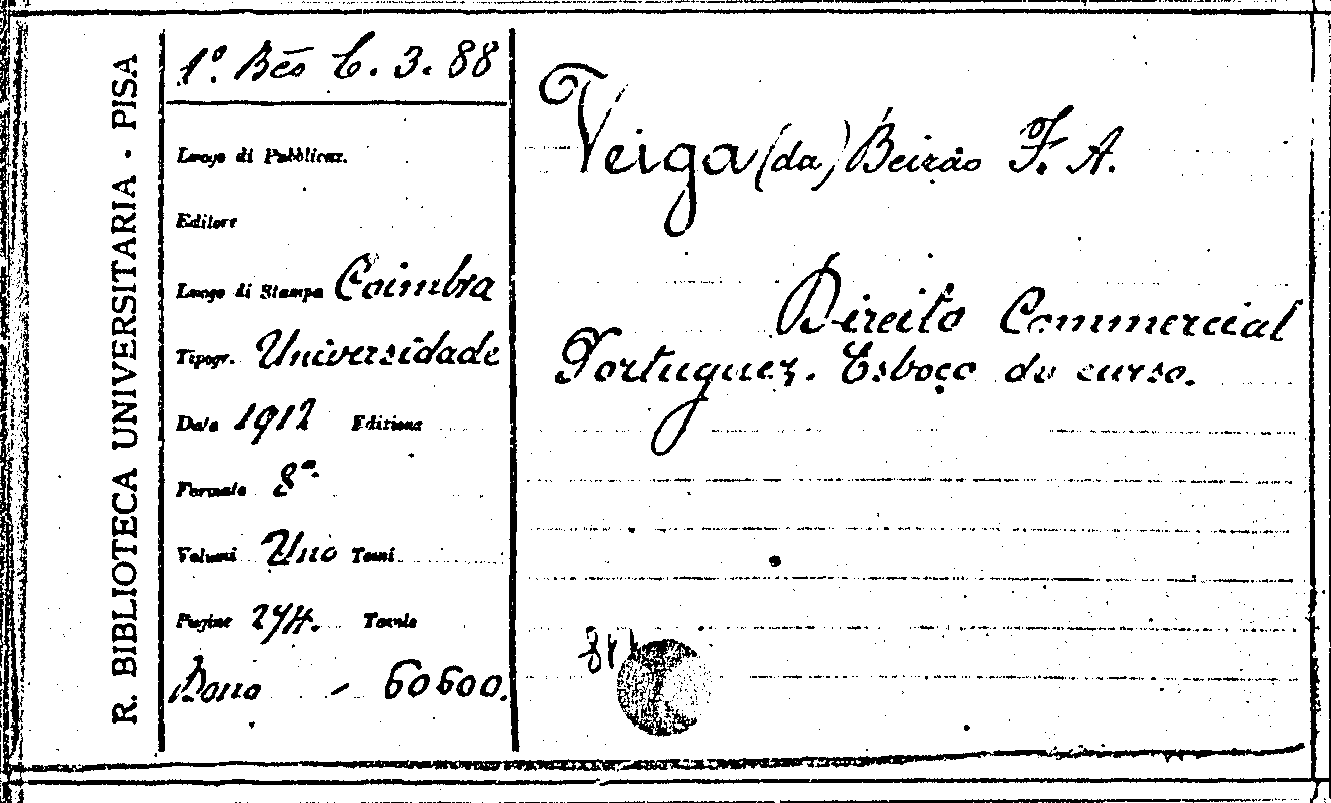 R. BIBLIOTECA UNIVERSITARIA · PISA
1º. Bēs C. 3. 88
Luogo di Pubblicaz.
Editore
Luogo di Stampa Coimbra
Tipogr. Universidade
Data 1912 Edizione
Formato 8º.
Volumi Uno Tomi
Pagine 274. Tavole
Dono - 60600.
Veiga (da) Beirão F. A.
Direito Commercial
Portuguez. Esboço do curso.